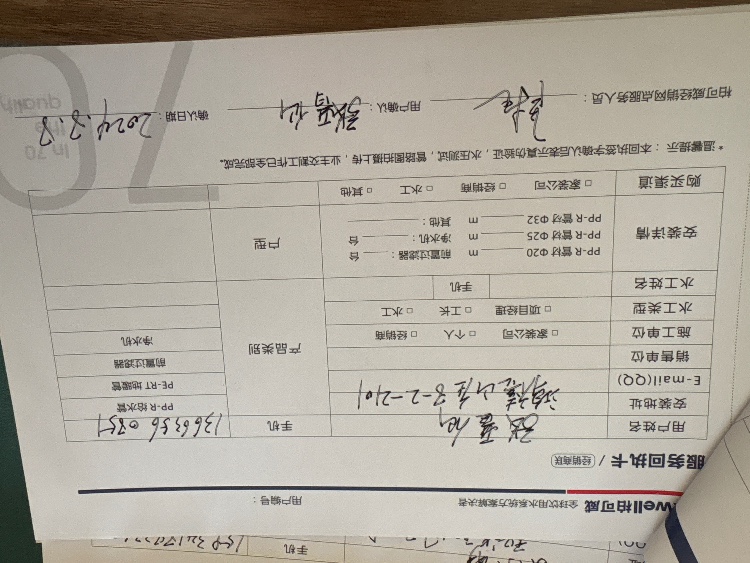 well柏可威 全球饮用水系统方案解决者 用户编号：
服务回执卡 / 经销商联
用户姓名 手机
安装地址 3-2-2101
E-mail(QQ)
销售单位
施工单位 □ 家装公司 □ 个人 □ 经销商
水工类型 □ 项目经理 □ 工长 □ 水工
水工姓名 手机
产品类别 PP-R 给水管
PE-RT 地暖管
前置过滤器
净水机
安装详情 PP-R 管材 Φ20 m 前置过滤器： 台
PP-R 管材 Φ25 m 净水机： 台
PP-R 管材 Φ32 m 其他：
户型
购买渠道 □ 家装公司 □ 经销商 □ 水工 □ 其他
*温馨提示：本回执签字确认后表示真伪验证，水压测试，管路图拍摄上传，业主交割工作已全部完成。
柏可威经销网点服务人员： 用户确认： 确认日期：2024.3.8
70
In 70
the
quality
手机